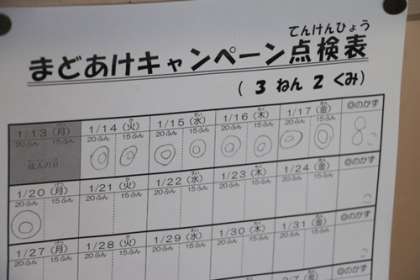 てんけんひょう
まどあけキャンペーン点検表
( 3 ねん 2 くみ)
1/13 (月) 1/14 (火) 1/15 (水) 1/16 (木) 1/17 (金) ◎のかず
20ふん 15ふん 20ふん 15ふん 20ふん 15ふん 20ふん 15ふん 20ふん 15ふん
成人の日 ◎ ◎ ◎ ◎ ◎ ◎ ◎ ◎ 8
1/20 (月) 1/21 (火) 1/22 (水) 1/23 (木) 1/24 (金) ◎のかず
20ふん 15ふん 20ふん 15ふん 20ふん 15ふん 20ふん 15ふん 20ふん 15ふん
◎
1/27 (月) 1/28 (火) 1/29 (水) 1/30 (木) 1/31 (金) ◎のかず
20ふん 15ふん 20ふん 15ふん 20ふん 15ふん 20ふん 15ふん